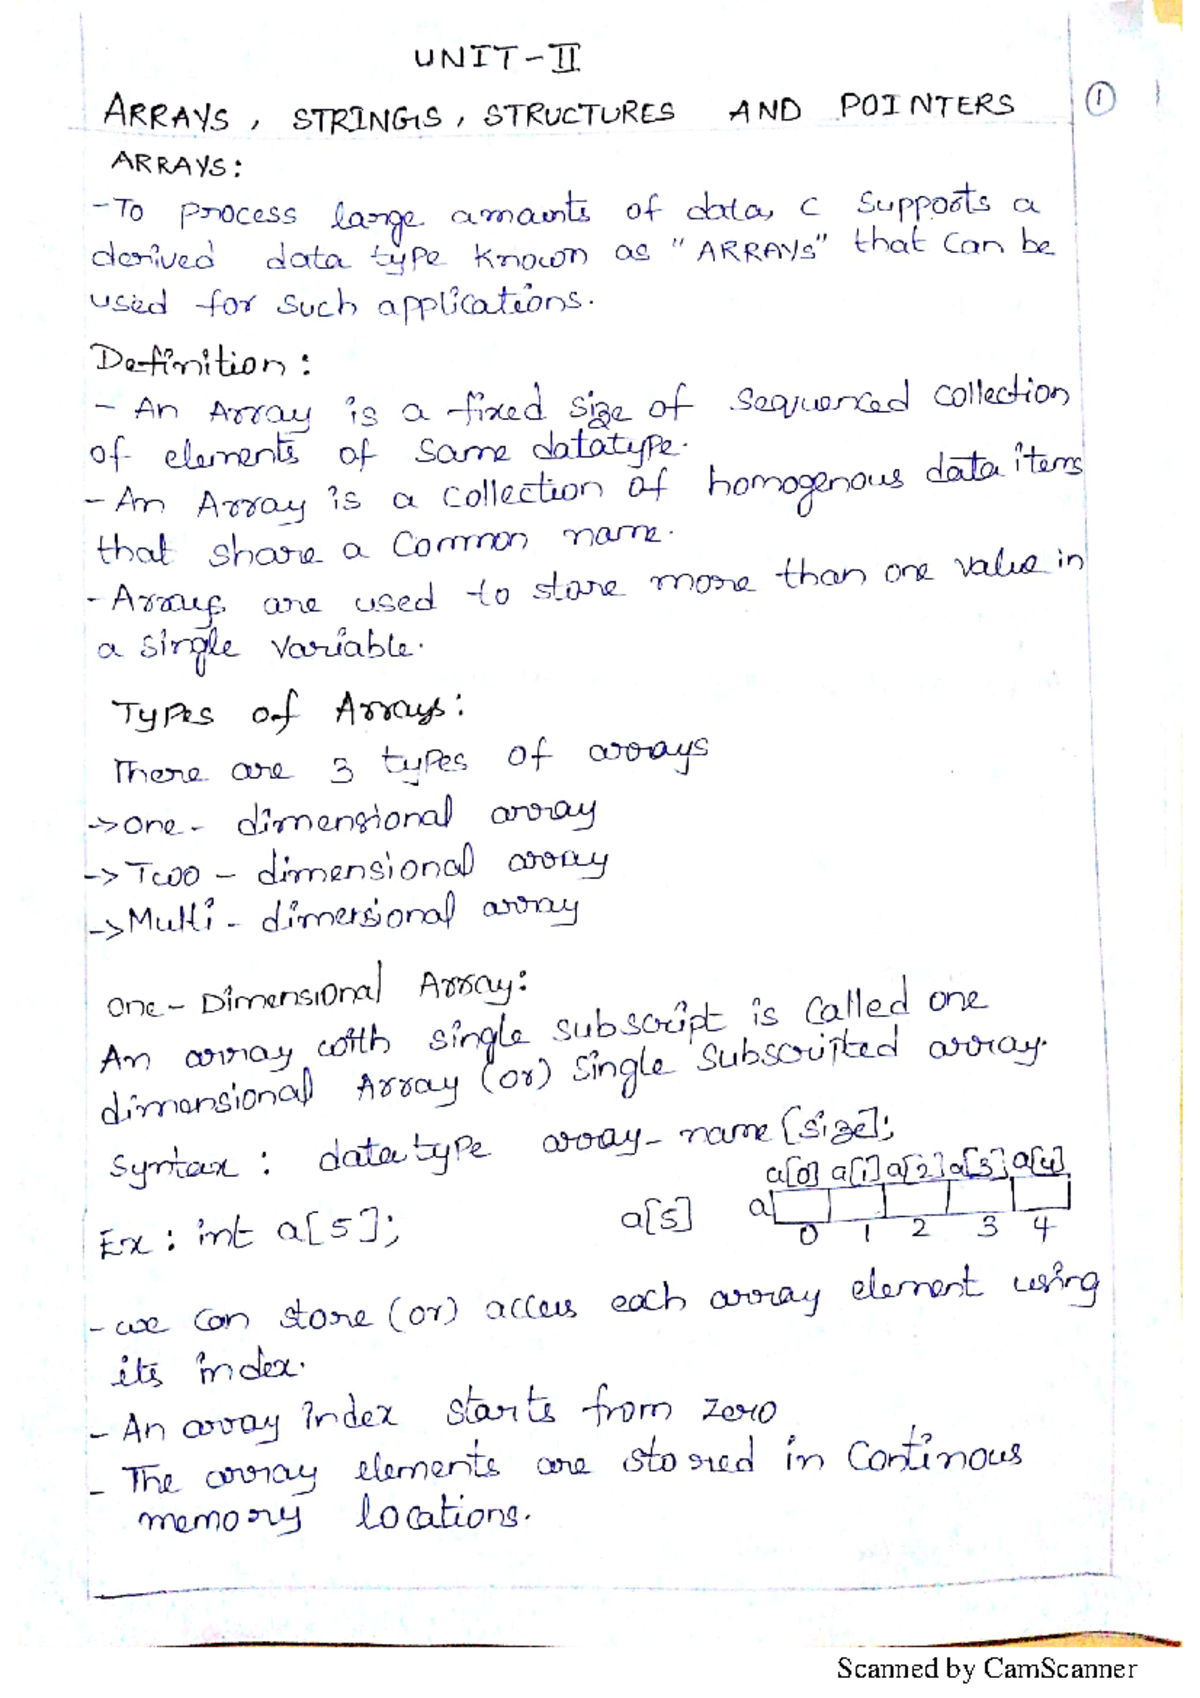 UNIT-II
ARRAYS, STRINGS, STRUCTURES AND POINTERS
1
ARRAYS:
-To process large amounts of data, C supports a
derived data type known as "ARRAYS" that can be
used for such applications.
Definition:
- An Array is a fixed size of sequenced collection
of elements of same datatype.
- An Array is a collection of homogenous data items
that share a common name.
- Arrays are used to store more than one value in
a single variable.
Types of Arrays:
There are 3 types of arrays
->One-dimensional array
->Two-dimensional array
->Multi-dimensional array
One-Dimensional Array:
An array with single subscript is called one
dimensional Array (or) single subscripted array.
Syntax: datatype array-name[size];
a[0] a[1] a[2] a[3] a[4]
Ex: int a[5]; a[5] a
0 1 2 3 4
- we can store (or) access each array element using
its index.
- An array index starts from zero
- The array elements are stored in continous
memory locations.
Scanned by CamScanner